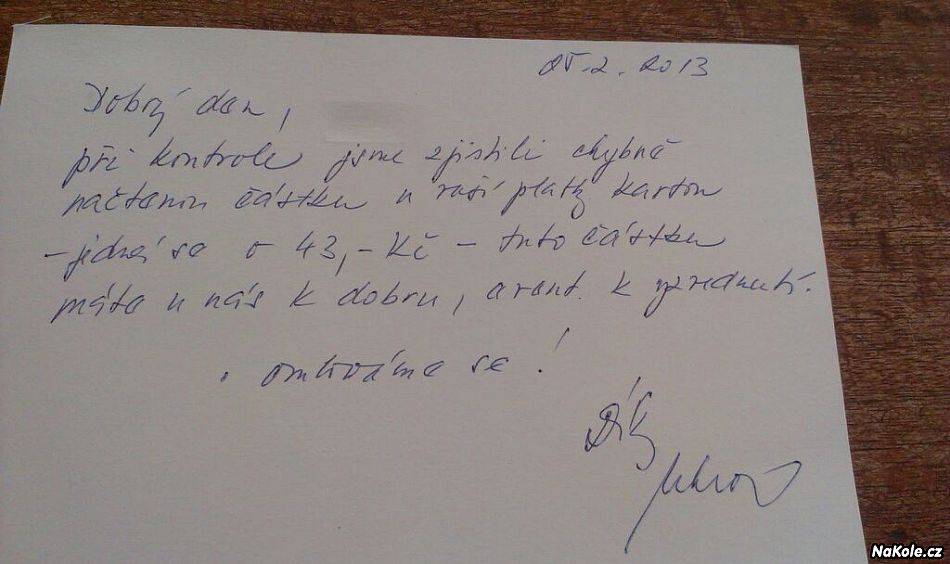 25.2.2013
Dobrý den,
při kontrole jsme zjistili chybně
načtenou částku u vaší platby kartou
- jedná se o 43,- Kč - tuto částku
máte u nás k dobru, event. k vyzvednutí.
omlouváme se!
Díky
NaKole.cz